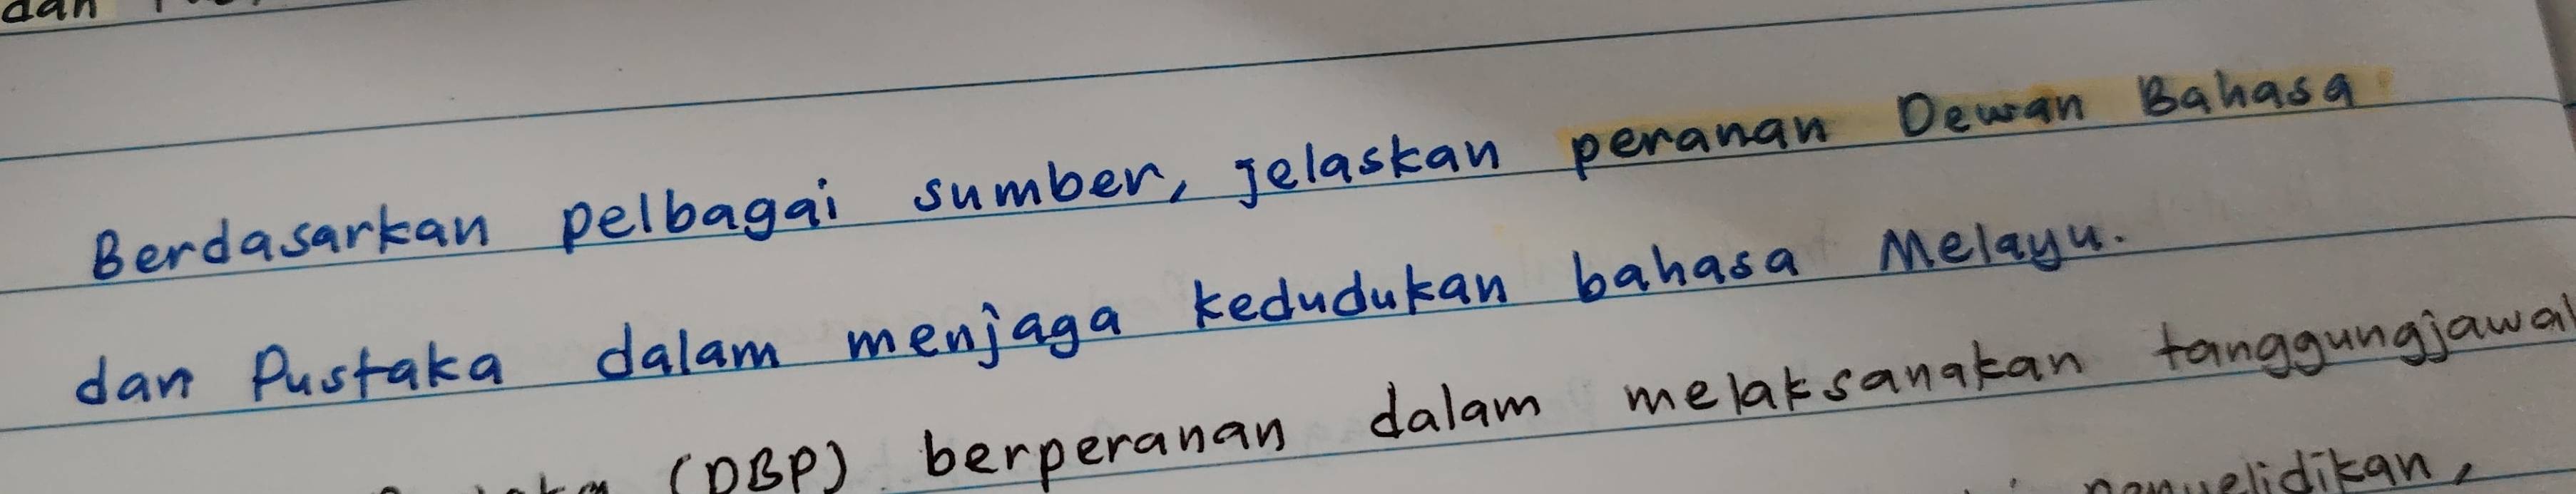 dan
Berdasarkan pelbagai sumber, jelaskan peranan Dewan Bahasa
dan Pustaka dalam menjaga kedudukan bahasa Melayu.
(DBP) berperanan dalam melaksanakan tanggungjawa
penyelidikan,